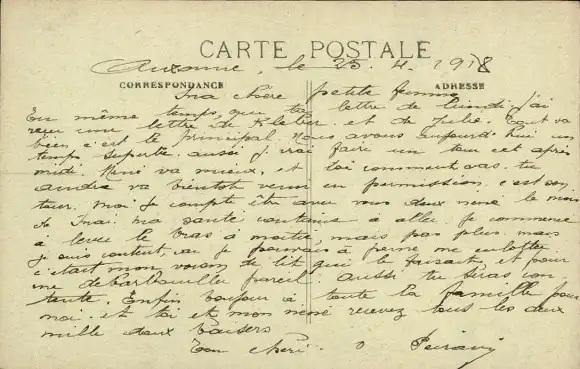 CARTE POSTALE
Auxonne, le 25. 4. 1918
CORRESPONDANCE
ADRESSE
Ma chère petite femme
En même temps que ta lettre de Lundi j'ai
reçu une lettre de Kleber et de Julie. Tout va
bien, c'est le principal. Nous avons aujourd'hui un
temps superbe aussi j'irai faire un tour cet après
midi. Néné va mieux, et toi comment vas-tu
André va bientôt venir en permission, c'est son
tour. Moi je compte être avec vous deux néné le mois
de Mai. ma santé continue à aller je commence
à lever le bras à moitié mais pas plus, mais
je suis content, car je pouvais à peine me culotter
c'était mon voisin de lit qui le faisait, et pour
me débarbouiller pareil. aussi tu seras con
tente. Enfin bonjour à toute la famille pour
moi. et toi et mon néné recevez tous les deux
mille doux baisers
Ton chéri